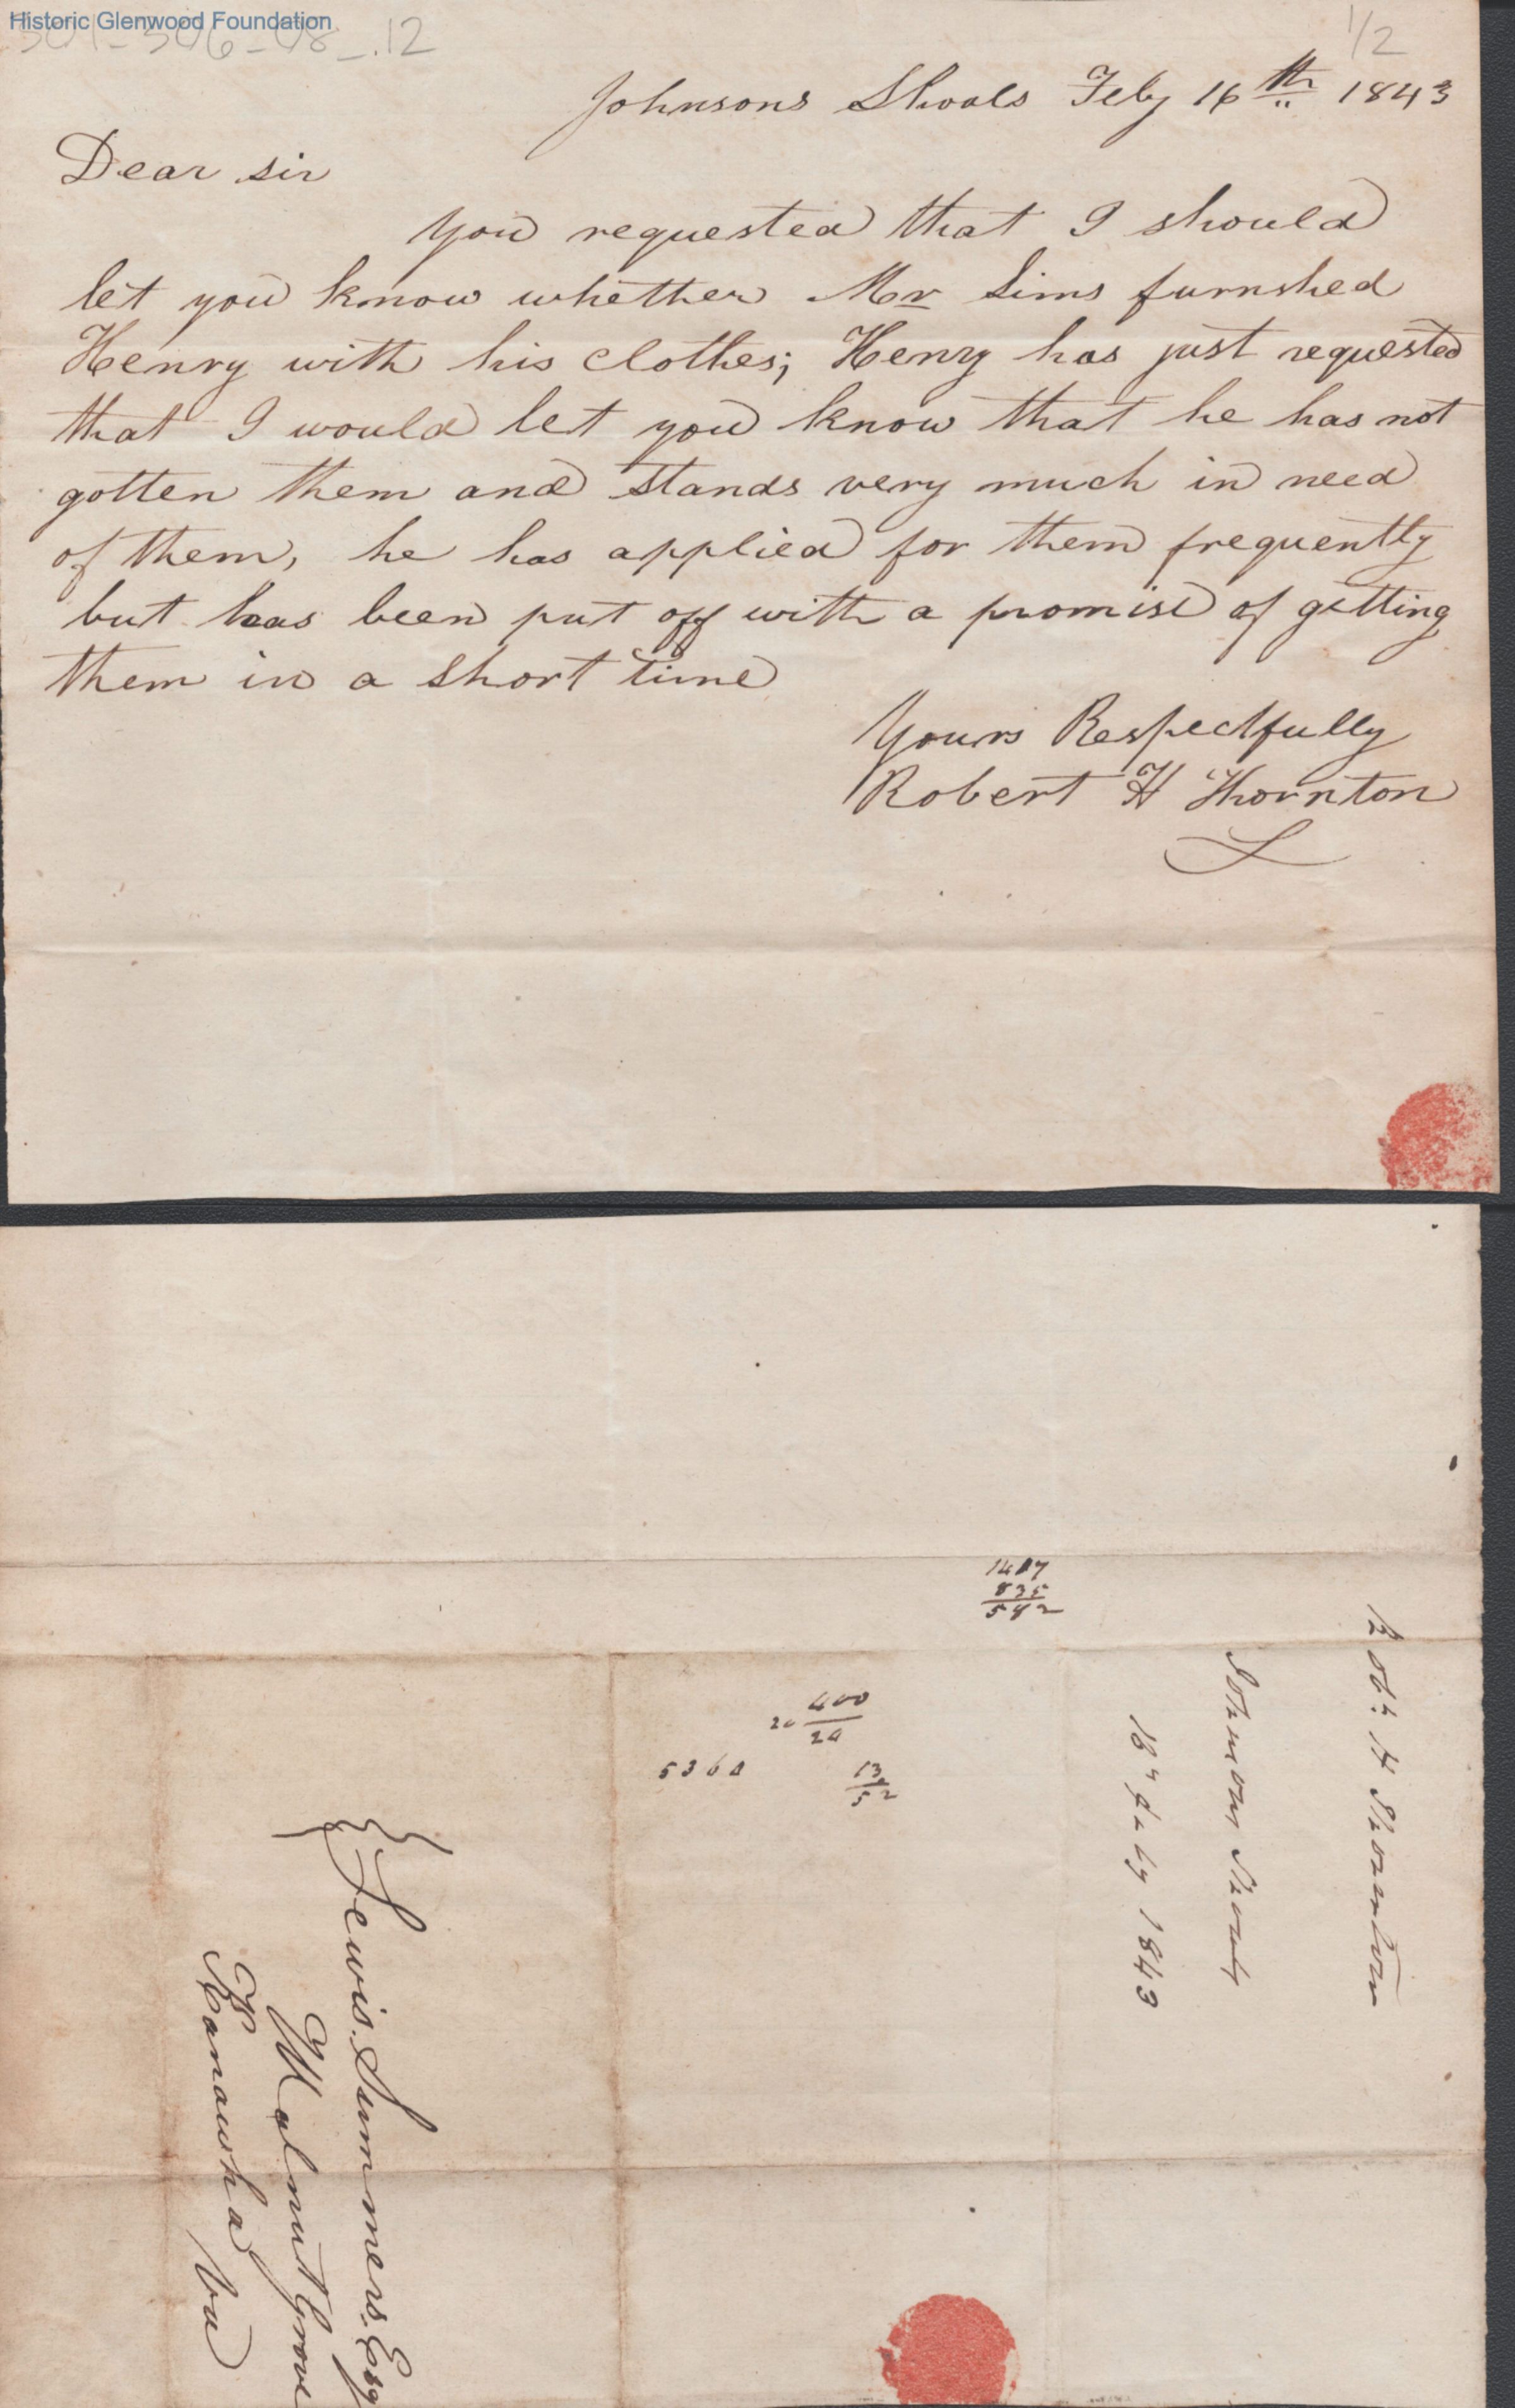 Historic Glenwood Foundation
1/2
Johnsons Shoals Feby 16th 1843
Dear sir
You requested that I should
let you know whether Mr Sims furnshed
Henry with his clothes; Henry has just requested
that I would let you know that he has not
gotten them and stands very much in need
of them, he has applied for them frequently
but has been put off with a promise of getting
them in a short time
Yours Respectfully
Robert H Thornton
835
400
20
13
52
Robt H Thornton
Johnsons Shoals
Feby 1843
Lewis Summers Esq
Walnut Grove
Kanawha Va